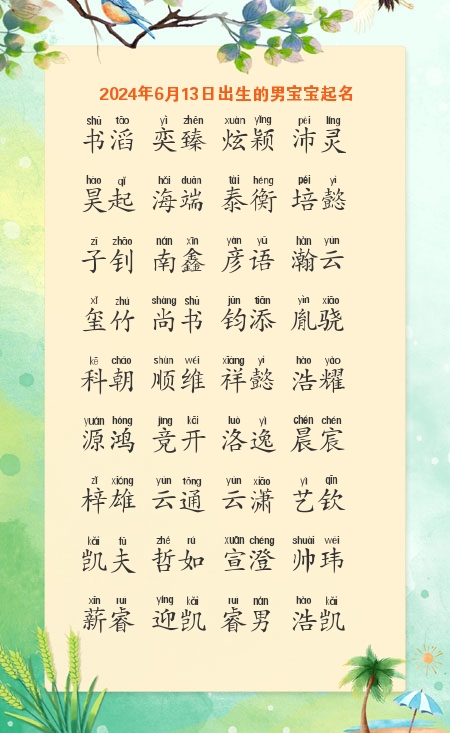 2024年6月13日出生的男宝宝起名
shū tāo yì zhēn xuàn yǐng pèi líng
书滔 奕臻 炫颖 沛灵
hào qǐ hǎi duān tài héng péi yì
昊起 海端 泰衡 培懿
zǐ zhāo nán xīn yàn yǔ hàn yún
子钊 南鑫 彦语 瀚云
xǐ zhú shàng shū jūn tiān yìn xiāo
玺竹 尚书 钧添 胤骁
kē cháo shùn wéi xiáng yì hào yào
科朝 顺维 祥懿 浩耀
yuán hóng jìng kāi luò yì chén chén
源鸿 竞开 洛逸 晨宸
zǐ xióng yún tōng yún xiāo yì qīn
梓雄 云通 云潇 艺钦
kǎi fū zhé rú xuān chéng shuài wěi
凯夫 哲如 宣澄 帅玮
xīn ruì yíng kǎi ruì nán hào kǎi
薪睿 迎凯 睿男 浩凯